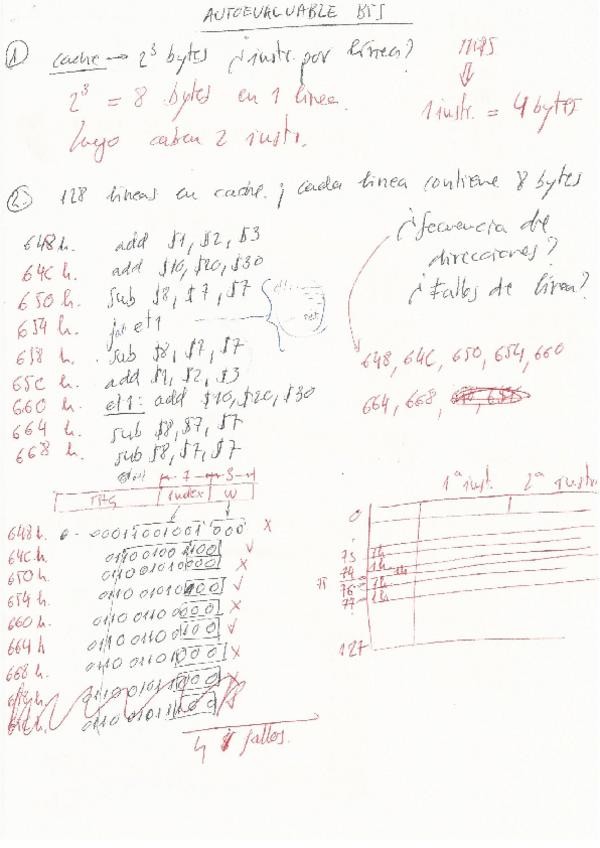 AUTOEVALUABLE BTS
1) cache → 2³ bytes ¿instr. por línea? MIPS
2³ = 8 bytes en 1 línea. 1 instr. = 4 bytes
luego caben 2 instr.
2. 128 líneas en cache. ; cada línea contiene 8 bytes
¿Secuencia de direcciones?
¿Fallos de línea?
648h. add $1, $2, $3
64C h. add $10, $20, $30
650 h. sub $8, $7, $7
654 h. et1
658 h. sub $8, $7, $7
65C h. add $1, $2, $3
660 h. et1: add $10, $20, $30
664 h. sub $8, $7, $7
668 h. sub $8, $7, $7
648, 64C, 650, 654, 660
664, 668,
7 3
TAG index w
648h. 0- 00011001001 000 x
64C h. 0110 0100 1100 ✓
650h. 0110 0101 0000 x
654 h. 0110 0101 0100 ✓
660 h. 0110 0110 0000 x
664 h 0110 0110 0100 ✓
668 h. 0110 0110 1000 x
4 fallos.
1ª inst. 2ª instr.
0
73
74
75
76
77
127